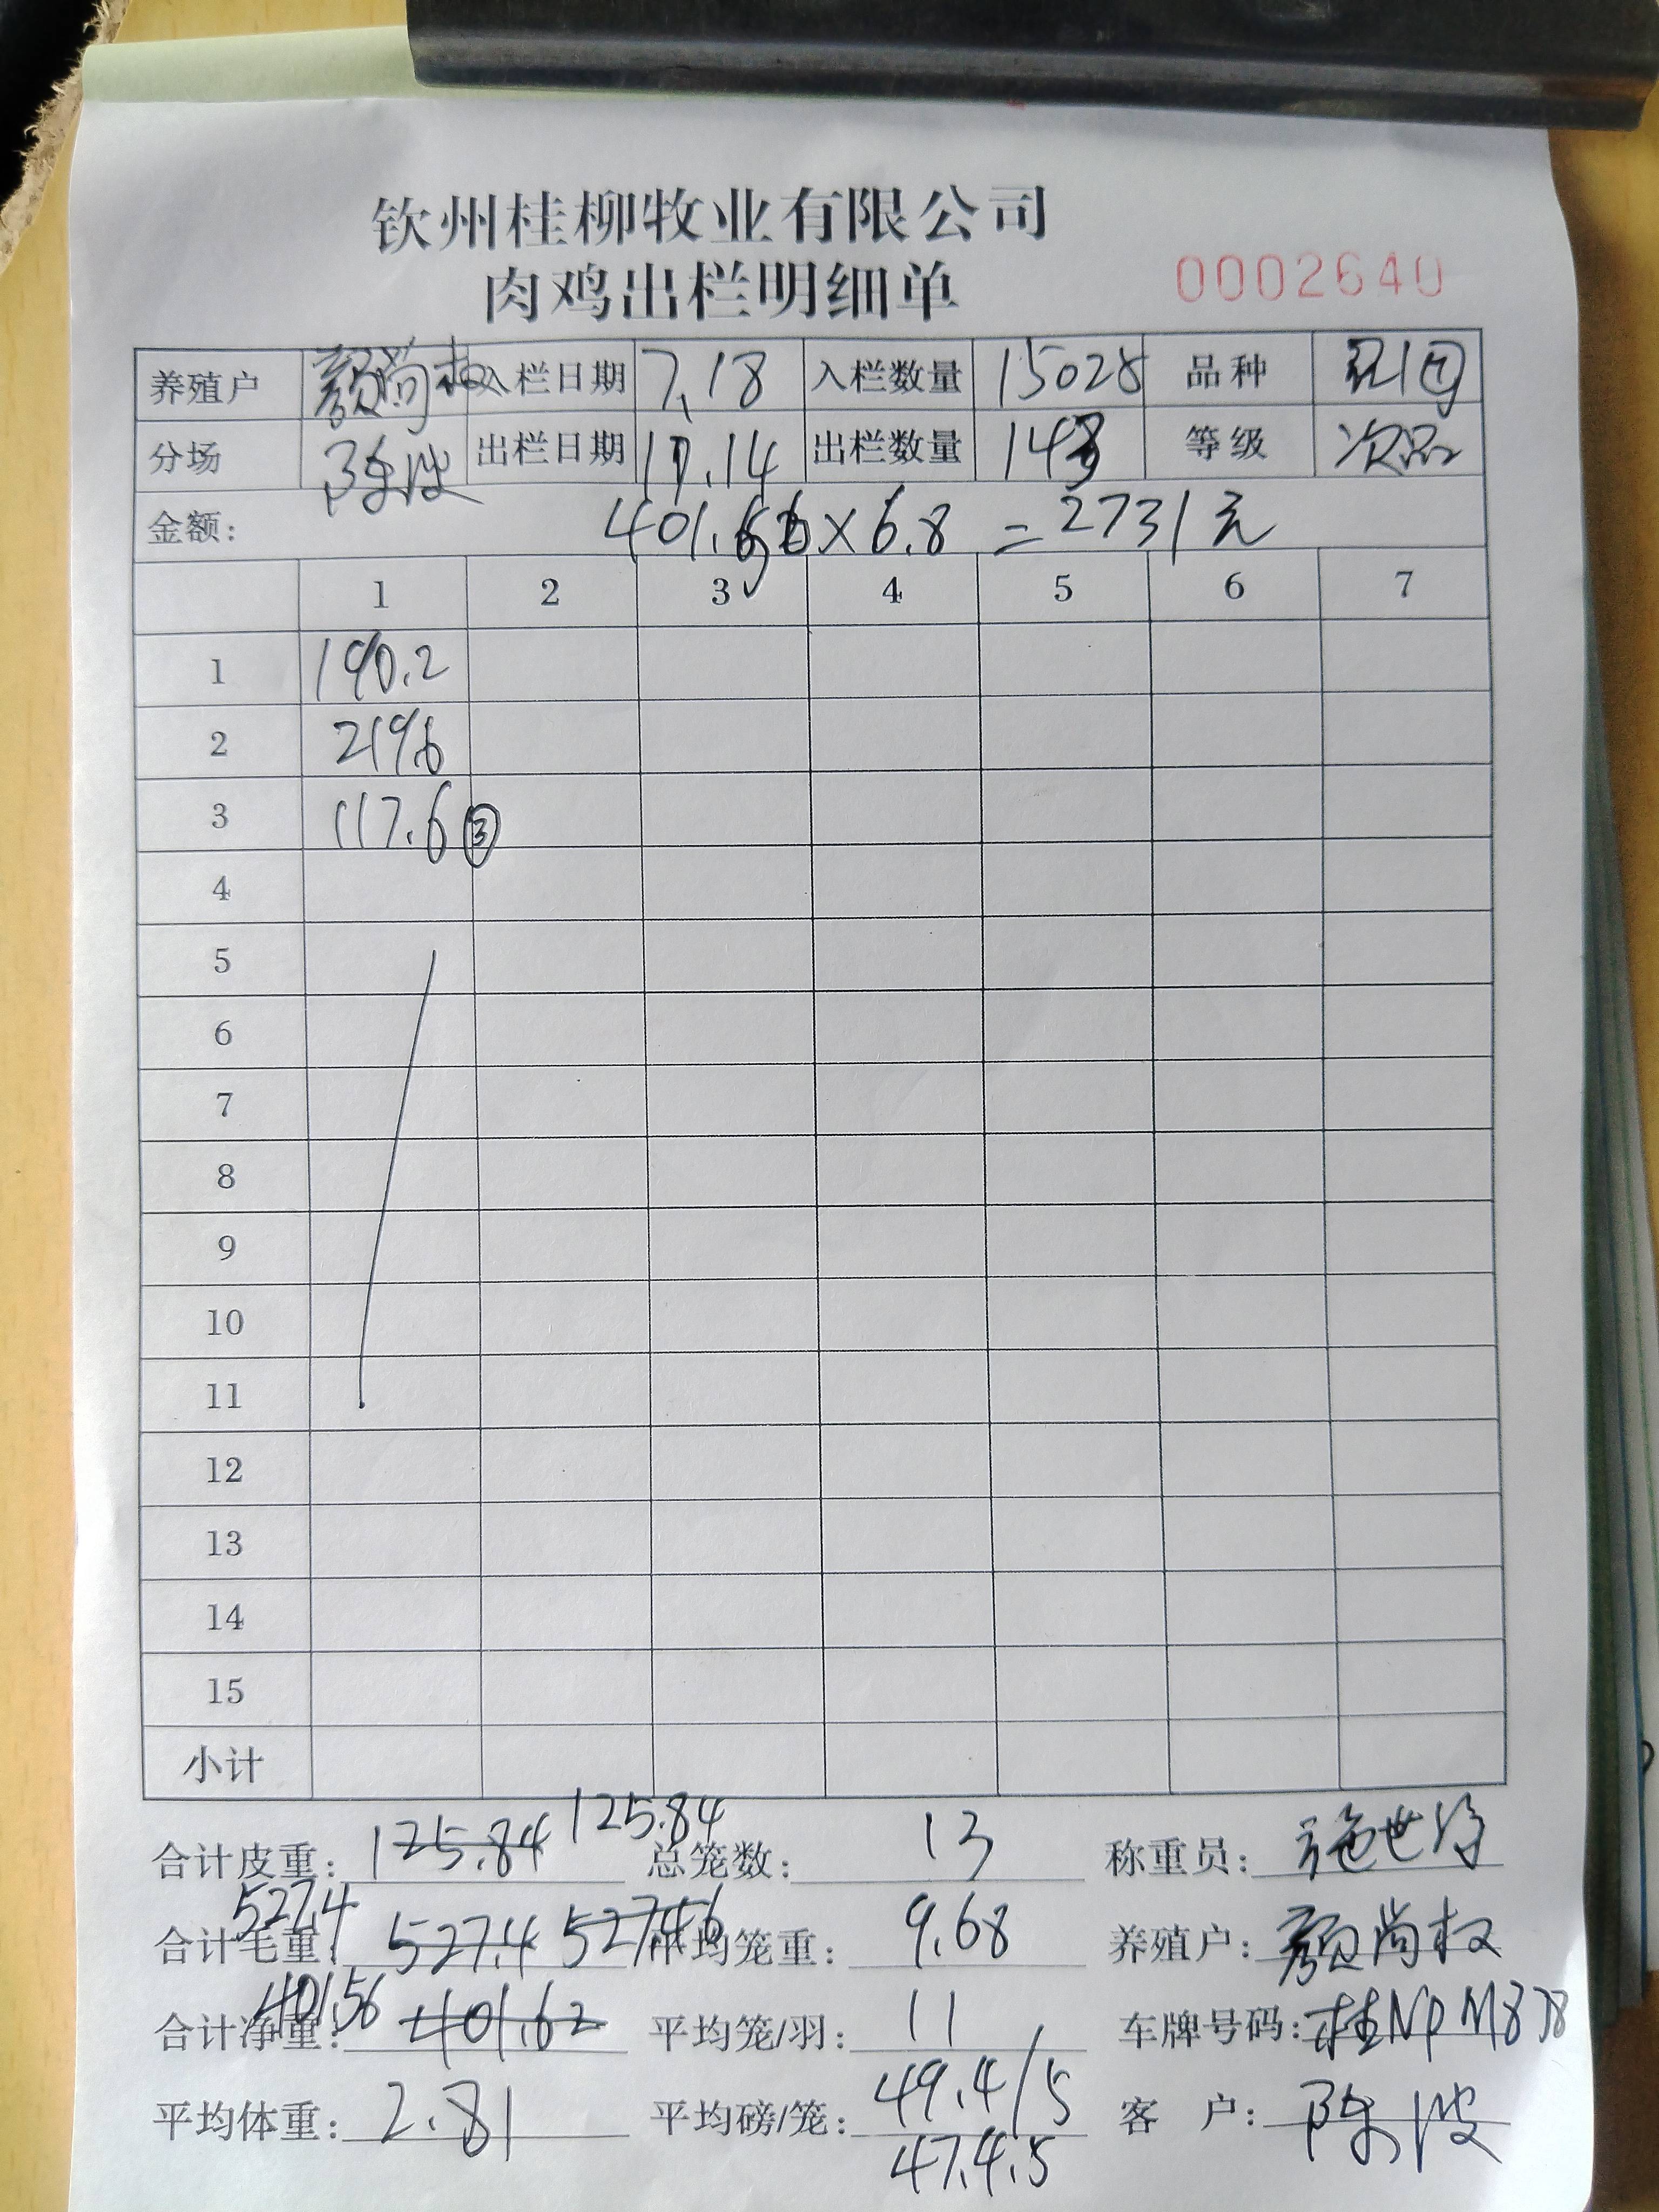 钦州桂柳牧业有限公司
肉鸡出栏明细单
0002640
养殖户 颜尚权 入栏日期 7.18 入栏数量 15028 品种
分场 陈波 出栏日期 出栏数量 143 等级 次品
金额: 401.56×6.8=2731元
1 2 3 4 5 6 7
1 190.2
2 219.6
3 117.6 ③
4
5
6
7
8
9
10
11
12
13
14
15
小计
合计皮重: 125.84 125.84 总笼数: 13 称重员:
527.4
合计毛重: 527.4 527.46 平均笼重: 9.68 养殖户: 颜尚权
401.56
合计净重: 401.62 平均笼/羽: 11 车牌号码:
平均体重: 2.81 平均磅/笼: 49.4/5 客 户: 陈波
47.4.5